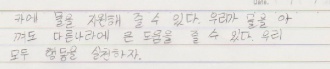 카에 물을 지원해 줄 수 있다. 우리가 물을 아
껴도 다른나라에 큰 도움을 줄 수 있다. 우리
모두 행동을 실천하자.